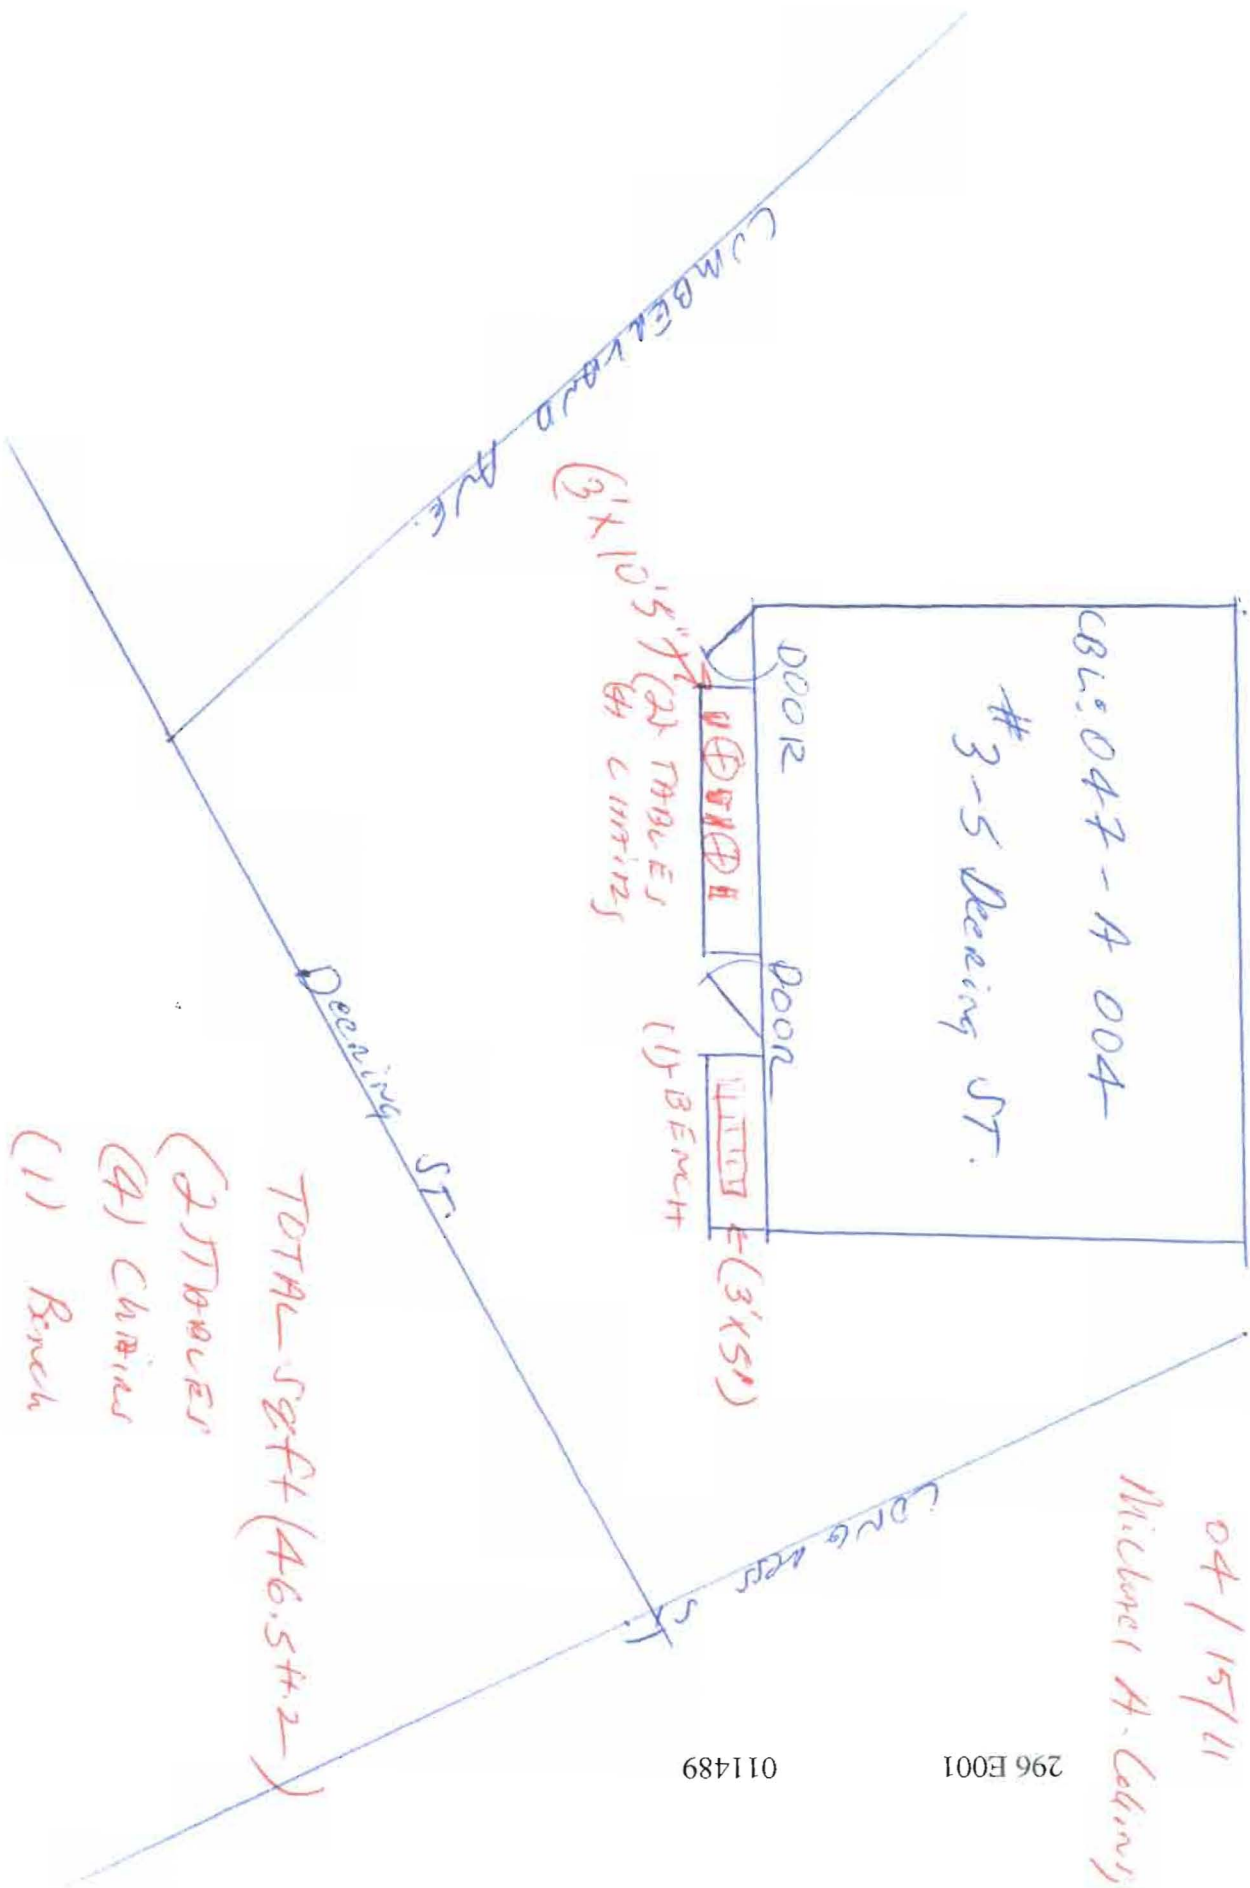 04/15/11
Michael A. Collins
CBL: 047-A 004
#3-5 Deering ST.
DOOR
DOOR
(3'X10'5")
(2) TABLES
(4) CHAIRS
(1) BENCH
(3'X5')
CUMBERLAND AVE.
Deering ST.
CONGRESS ST.
TOTAL SQft (46.5ft.2)
(2) TABLES
(4) Chairs
(1) Bench
296 E001
011489